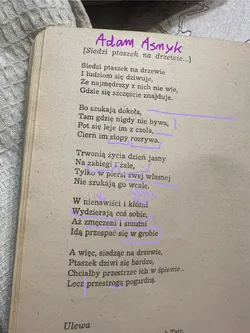 Adam Asnyk
[Siedzi ptaszek na drzewie...]
Siedzi ptaszek na drzewie
I ludziom się dziwuje,
Że najmędrszy z nich nie wie,
Gdzie się szczęście znajduje.
Bo szukają dokoła,
Tam gdzie nigdy nie bywa,
Pot się leje im z czoła,
Cierń im stopy rozrywa.
Trwonią życia dzień jasny
Na zabiegi i żale,
Tylko w piersi swej własnej
Nie szukają go wcale.
W nienawiści i kłótni
Wydzierają coś sobie,
Aż zmęczeni i smutni
Idą przespać się w grobie.
A więc, siedząc na drzewie,
Ptaszek dziwi się bardzo,
Chciałby przestrzec ich w śpiewie..
Lecz przestrogą pogardzą.
Ulewa